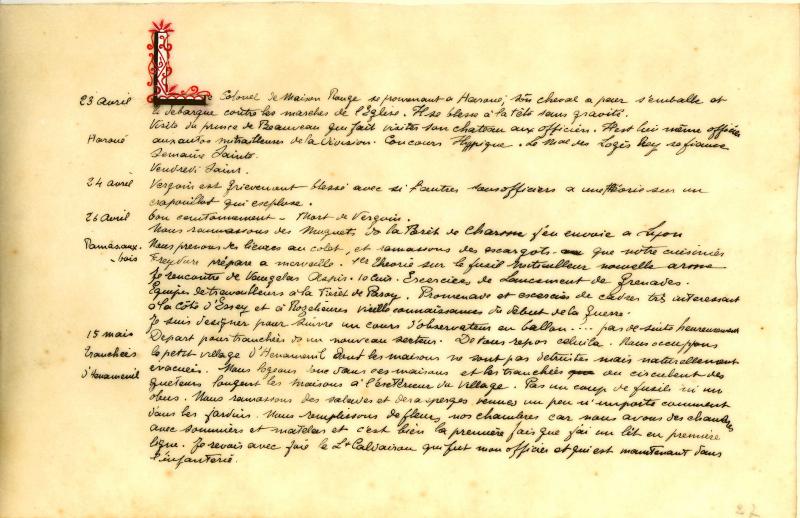 Le Colonel de Maison Rouge se promenant à Haroué, son cheval a peur s'emballe et
23 avril
le débarque contre les marches de l'Eglise. Il se blesse à la tête sans gravité.
Visite du prince de Beauveau qui fait visiter son chateau aux officiers. Il est lui même officier
Haroué
aux autos mitrailleuses de la Division. Concours Hyppique. Le M de Logis Rey se fiance
Semaine Sainte.
Vendredi Saint.
24 avril
Vergoin est grievement blessé avec six autres sous officiers a une théorie sur un
crapouillot qui explose.
26 avril
bon cantonnement - Mort de Vergoin.
Nous ramassons des Muguets de la Forêt de Charme j'en envoie à Lyon
Nous prenons des lievres au colet, et ramassons des escargots que notre cuisinier
bois
prépare a merveille. 1ere théorie sur le fusil mitrailleur nouvelle arme
Je rencontre de Vaugelas Aspis. 10 Cuir. Excercices de Lancement de Grenades.
Equipes de travailleurs à la Forêt de Paroy. Promenade et excercices de cadres très interessant
à la Côte d'Essey et à Rozelieures vieille connaissances du début de la Guerre.
Je suis designer pour suivre un cours d'observateur en ballon .... pas de suite heureusement
15 mai
Depart pour tranchées d'un nouveau secteur. De tous repos celui la. Nous occupons
tranchées
le petit village d'Henamenil dont les maisons ne sont pas detruites mais naturellement
d'Henamenil
évacuées. Nous logeons donc dans ces maisons et les tranchées ou circulent des
guéteurs longent les maisons à l'extérieur du village. Pas un coup de fusils ni un
obus. Nous ramassons des salades et des asperges venues un peu n'importe comment
dans les jardins. Nous remplissons de fleurs nos chambres car nous avons des chambres
avec sommiers et matelas et c'est bien la première fois que j'ai un lit en première
ligne. Je revois avec joie le Lt Calvairon qui fut mon officier et qui est maintenant dans
l'infanterie.
27